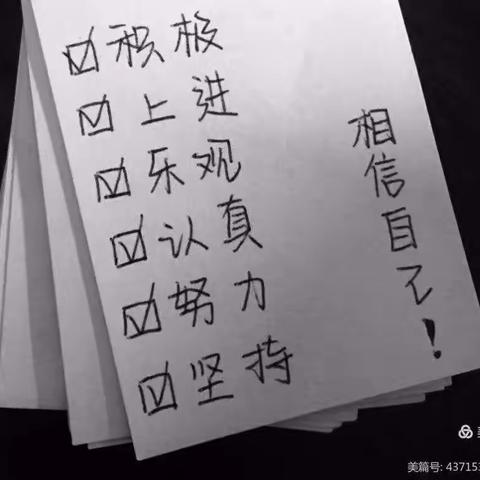 ☑积极
☑上进
☑乐观
☑认真
☑努力
☑坚持
相信自己！
美篇号: 43715